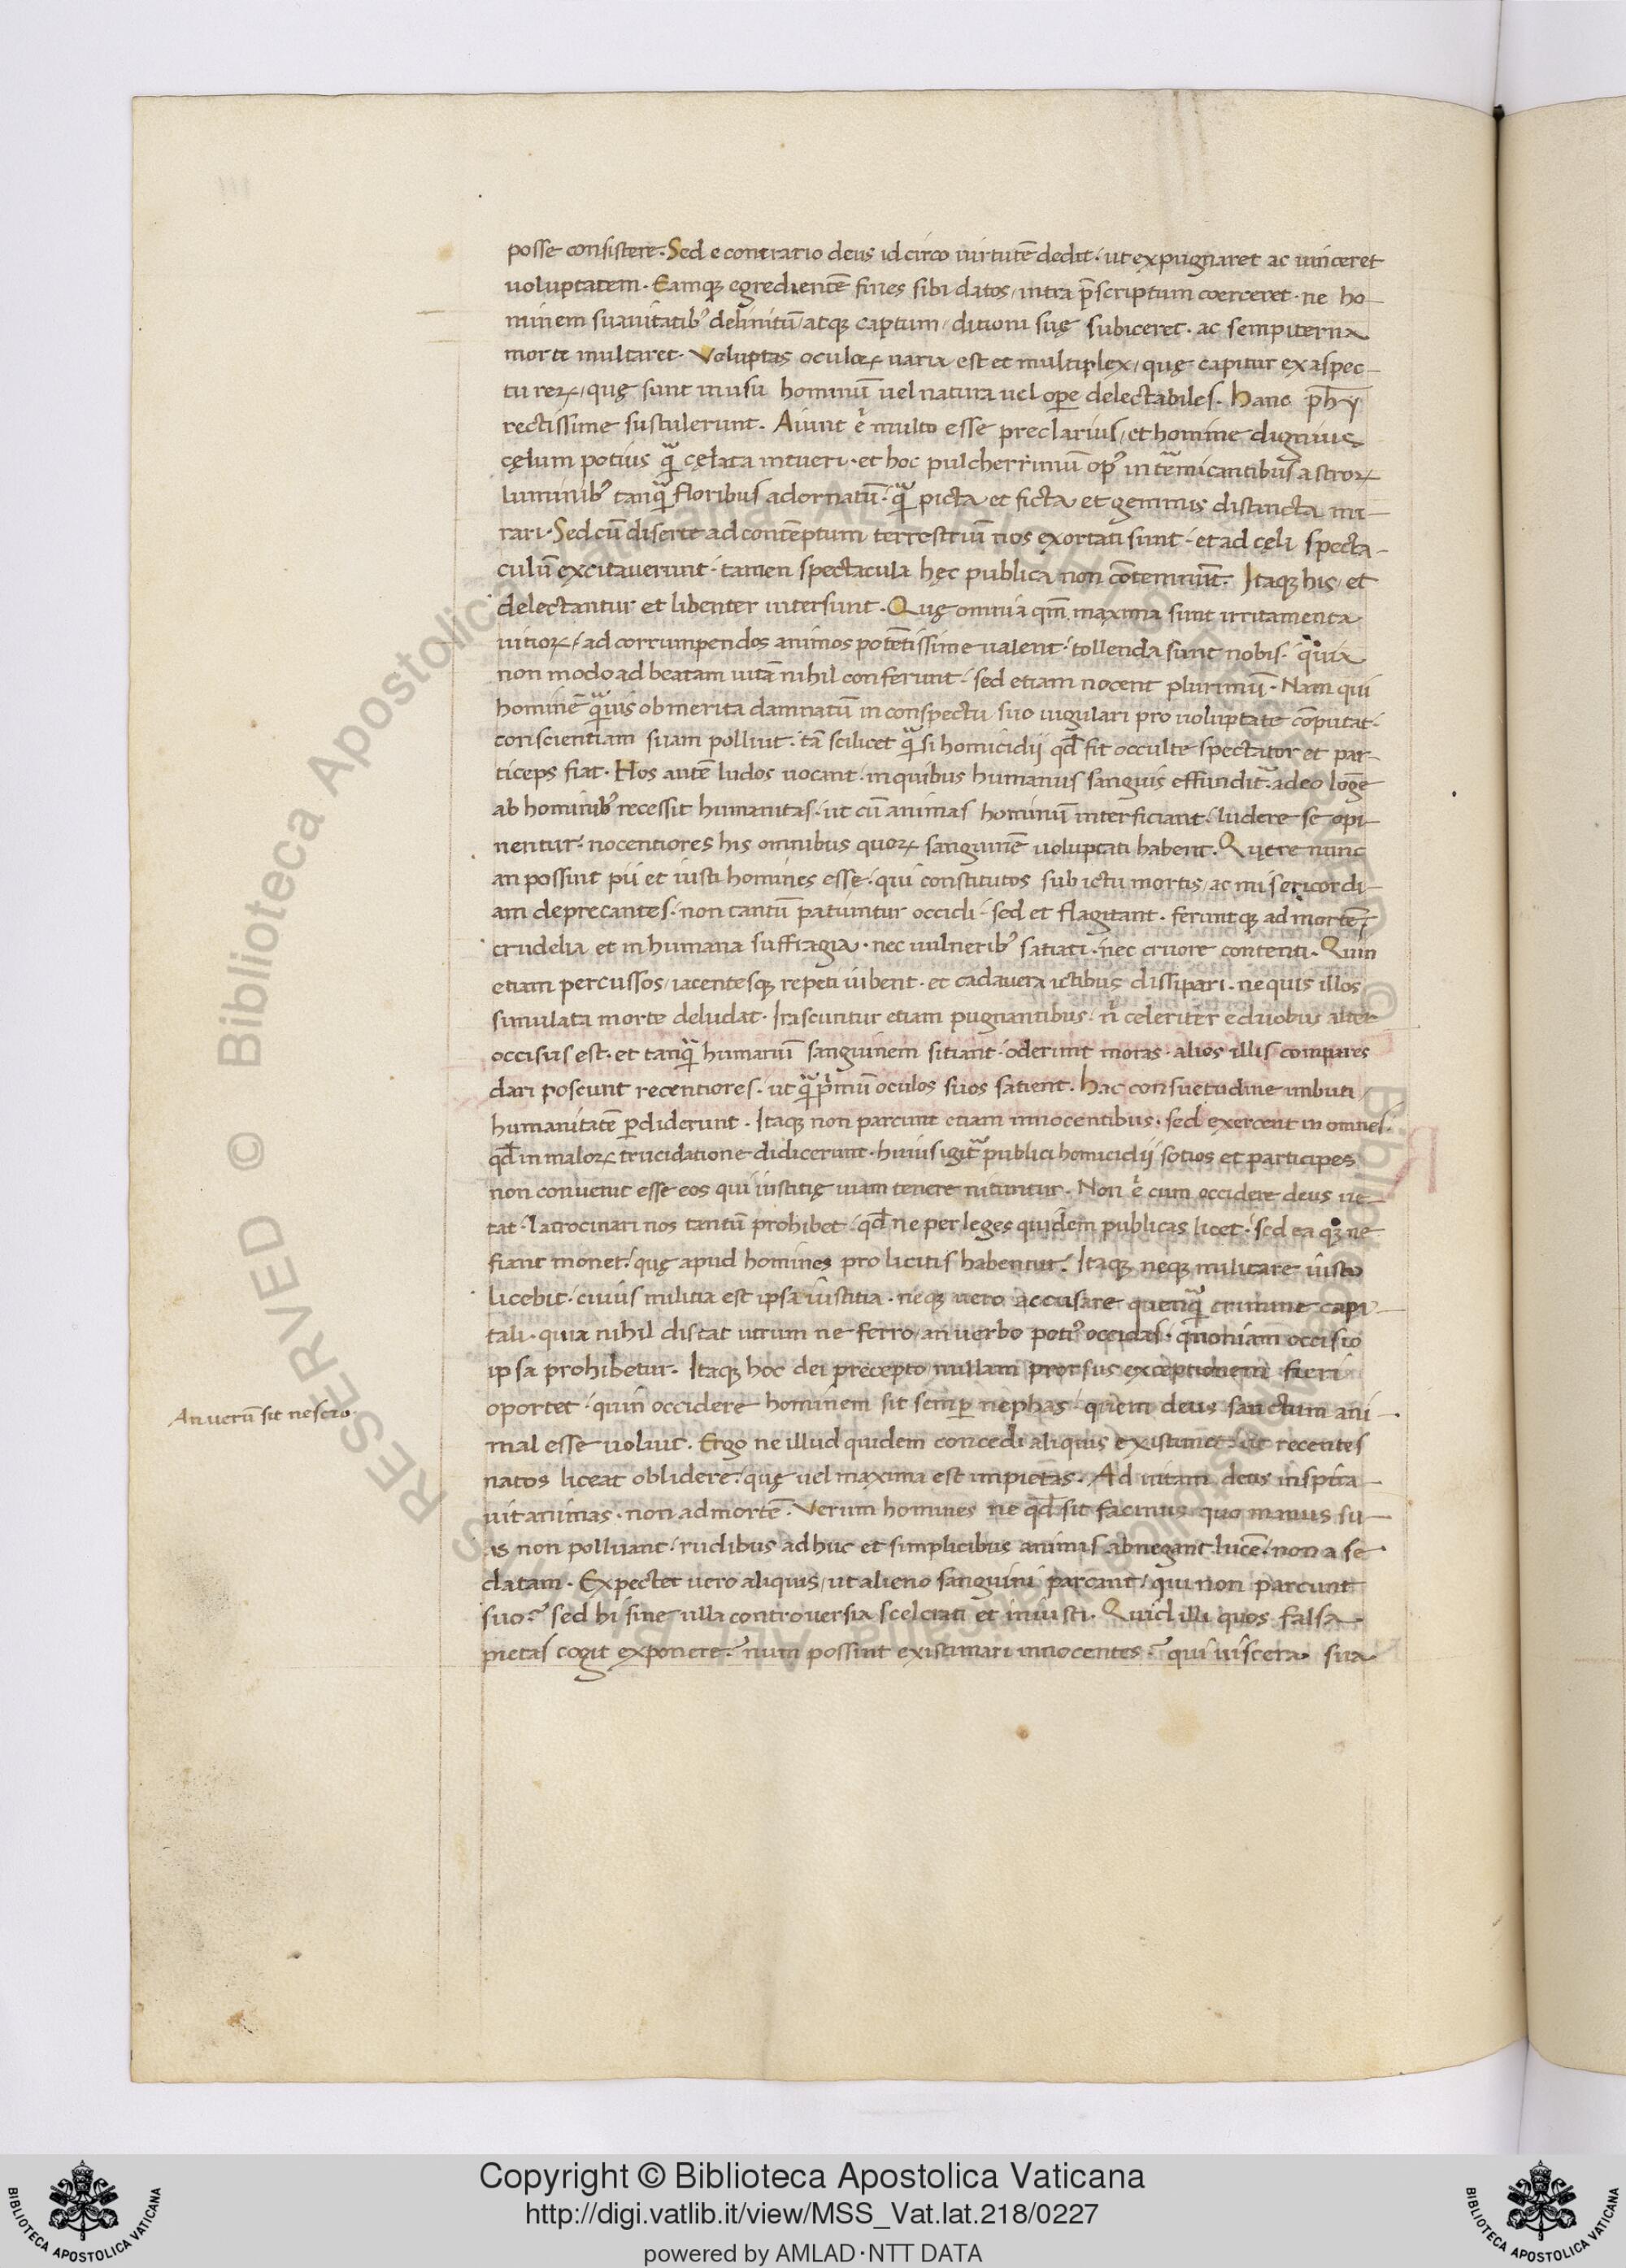 posse consistere. Sed e contrario deus idcirco uirtutē dedit. ut expugnaret ac uinceret
uoluptatem. Eamq; egredientē fines sibi datos, intra p̄scriptum coerceret. ne ho-
minem suauitatib; delinitū, atq; captum, ditioni suę subiceret. ac sempiterna
morte multaret. Voluptas oculoꝝ uaria est et multiplex, quę capitur ex aspec-
tu reꝝ, quę sunt in usu hominū uel natura uel opere delectabiles. Hanc ph̄y
rectissime sustulerunt. Aiunt .n. multo esse preclarius, et homine dignius
cęlum potius q̃ cęlata intueri. et hoc pulcherrimū op' intermicantibus astroꝝ
luminib; tanq̃ floribus adornatū. q̃ picta et ficta et gemmis distincta mi-
rari. Sed cū diserte ad contēptum terrestriū nos exortati sunt. et ad cęli specta-
culū excitauerunt. tamen spectacula hęc publica non cōtemnūt. Itaq; his, et
delectantur et libenter intersunt. Quę omnia qm̄ maxima sunt irritamenta
uitioꝝ, ad corrumpendos animos potētissime ualent. tollenda sunt nobis. quia
non modo ad beatam uitā nihil conferunt. sed etiam nocent plurimū. Nam qui
hominē q̃uis ob merita damnatū in conspectu suo iugulari pro uoluptate cōputat.
conscientiam suam polluit. tā scilicet q̃ si homicidij qd̄ fit occulte spectator et par-
ticeps fiat. Hos autē ludos uocant. in quibus humanus sanguis effundit̃. adeo lōge
ab hominib; recessit humanitas. ut cū animas hominū interficiant. ludere se opi-
nentur. nocentiores his omnibus quoꝝ sanguinē uoluptati habent. Quere nunc
an possint pii et iusti homines esse. qui constitutos sub ictu mortis, ac misericordi-
am deprecantes. non tantū patiuntur occidi. sed et flagitant. feruntq; ad mortē
crudelia et inhumana suffragia. nec uulnerib; satiati. nec cruore contenti. Quin
etiam percussos, iacentesq; repeti iubent. et cadauera ictibus dissipari. ne quis illos
simulata morte deludat. Irascuntur etiam pugnantibus. n̄ celeriter e duobus alter
occisus est. et tanq̃ humanū sanguinem sitiant. oderunt moras. alios illis compares
dari poscunt recentiores. ut q̃ p̄mū oculos suos satient. Hac consuetudine imbuti,
humanitatē ꝑdiderunt. Itaq; non parcunt etiam innocentibus. sed exercent in omnes.
qd̄ in maloꝝ trucidatione didicerunt. huius igit̃ publici homicidij sotios et participes
non conuenit esse eos qui iustitię uiam tenere nituntur. Non .n. cum occidere deus ue-
tat. latrocinari nos tantū prohibet. qd̄ ne per leges quidem publicas licet. sed ea q; ne
fiant monet. quę apud homines pro licitis habentur. Itaq; neq; militare iusto
licebit. cuius militia est ipsa iustitia. neq; uero accusare quenq̃ crimine capi-
tali. quia nihil distat utrum ne ferro, an uerbo poti' occidas. quoniam occisio
ipsa prohibetur. Itaq; hoc dei precepto nullam prorsus exceptionem fieri
An uerū sit nescio.
oportet. quin occidere hominem sit semꝑ nephas. quem deus sanctum ani-
mal esse uoluit. Ergo ne illud quidem concedi aliquis existimet. ut recentes
natos liceat oblidere. quę uel maxima est impietas. Ad uitam deus inspira-
uit animas. non ad mortē. Verum homines ne qd̄ sit facinus quo manus su-
as non polluant. rudibus adhuc et simplicibus animis abnegant lucē. non a se
datam. Expectet uero aliquis, ut alieno sanguini parcant, qui non parcunt
suo? sed hi sine ulla controuersia scelerati et iniusti. Quid illi quos falsa
pietas cogit exponere? num possint existimari innocentes? qui uiscera sua
Copyright © Biblioteca Apostolica Vaticana
http://digi.vatlib.it/view/MSS_Vat.lat.218/0227
powered by AMLAD·NTT DATA
BIBLIOTECA APOSTOLICA VATICANA
BIBLIOTECA APOSTOLICA VATICANA